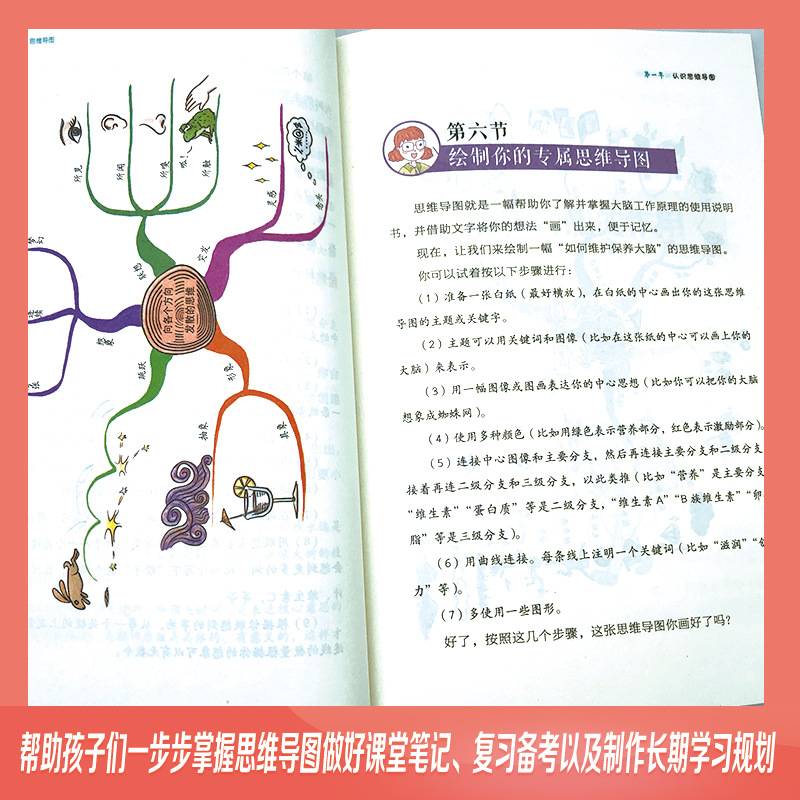 思维导图
所见
所闻
所嗅
呱！
所触
灵感
念头
感购
突发
梦幻
连续
想象
向各个方向
发散的思维
跳跃
形象
抽象
具象
第一章 认识思维导图
第六节
绘制你的专属思维导图
思维导图就是一幅帮助你了解并掌握大脑工作原理的使用说明
书，并借助文字将你的想法“画”出来，便于记忆。
现在，让我们来绘制一幅“如何维护保养大脑”的思维导图。
你可以试着按以下步骤进行：
（1）准备一张白纸（最好横放），在白纸的中心画出你的这张思维
导图的主题或关键字。
（2）主题可以用关键词和图像（比如在这张纸的中心可以画上你的
大脑）来表示。
（3）用一幅图像或图画表达你的中心思想（比如你可以把你的大脑
想象成蜘蛛网）。
（4）使用多种颜色（比如用绿色表示营养部分，红色表示激励部分）。
（5）连接中心图像和主要分支，然后再连接主要分支和二级分支，
接着再连二级分支和三级分支，以此类推（比如“营养”是主要分支，
“维生素”“蛋白质”等是二级分支，“维生素A”“B族维生素”“卵
脂”等是三级分支）。
（6）用曲线连接。每条线上注明一个关键词（比如“滋润”“
力”等）。
（7）多使用一些图形。
好了，按照这几个步骤，这张思维导图你画好了吗？
帮助孩子们一步步掌握思维导图做好课堂笔记、复习备考以及制作长期学习规划